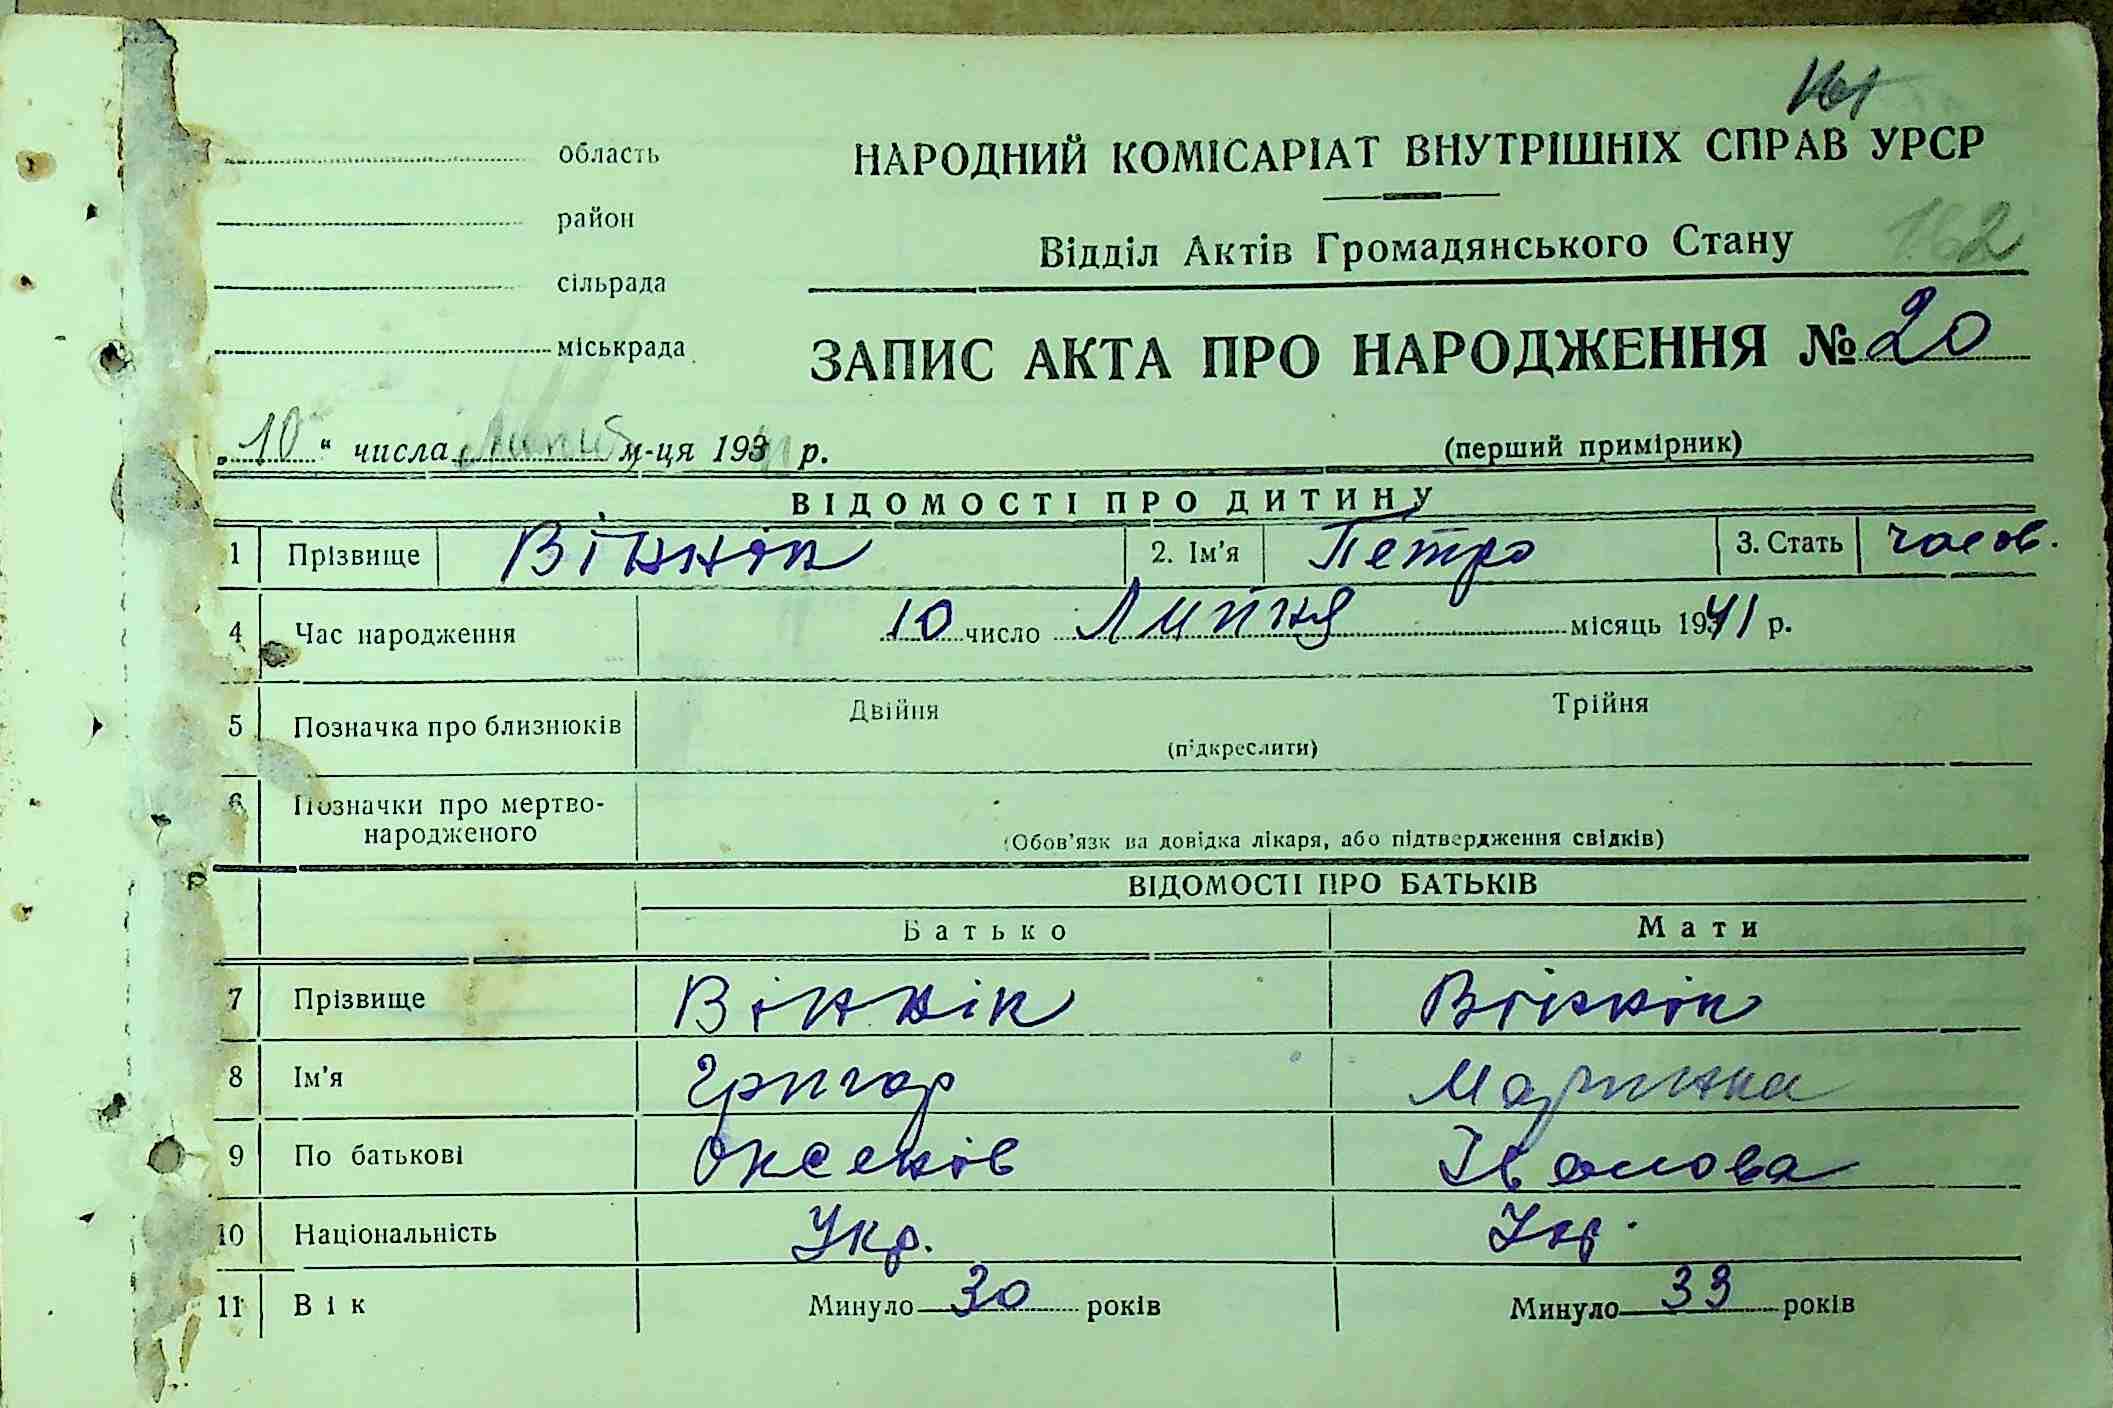 161
область
НАРОДНИЙ КОМІСАРІАТ ВНУТРІШНІХ СПРАВ УРСР
район
162
Відділ Актів Громадянського Стану
сільрада
міськрада
ЗАПИС АКТА ПРО НАРОДЖЕННЯ № 20
„10“ числа Липня м-ця 1941 р.
(перший примірник)
ВІДОМОСТІ ПРО ДИТИНУ
1 Прізвище Віннік 2. Ім'я Петро 3. Стать чолов.
4 Час народження 10 число Липня місяць 1941 р.
5 Позначка про близнюків Двійня Трійня
(підкреслити)
6 Позначки про мертво-
народженого
(Обов'язкова довідка лікаря, або підтвердження свідків)
ВІДОМОСТІ ПРО БАТЬКІВ
Батько Мати
7 Прізвище Віннік Віннік
8 Ім'я Григор Маринка
9 По батькові Оксенів Іванова
10 Національність Укр. Укр.
11 Вік Минуло 30 років Минуло 33 років